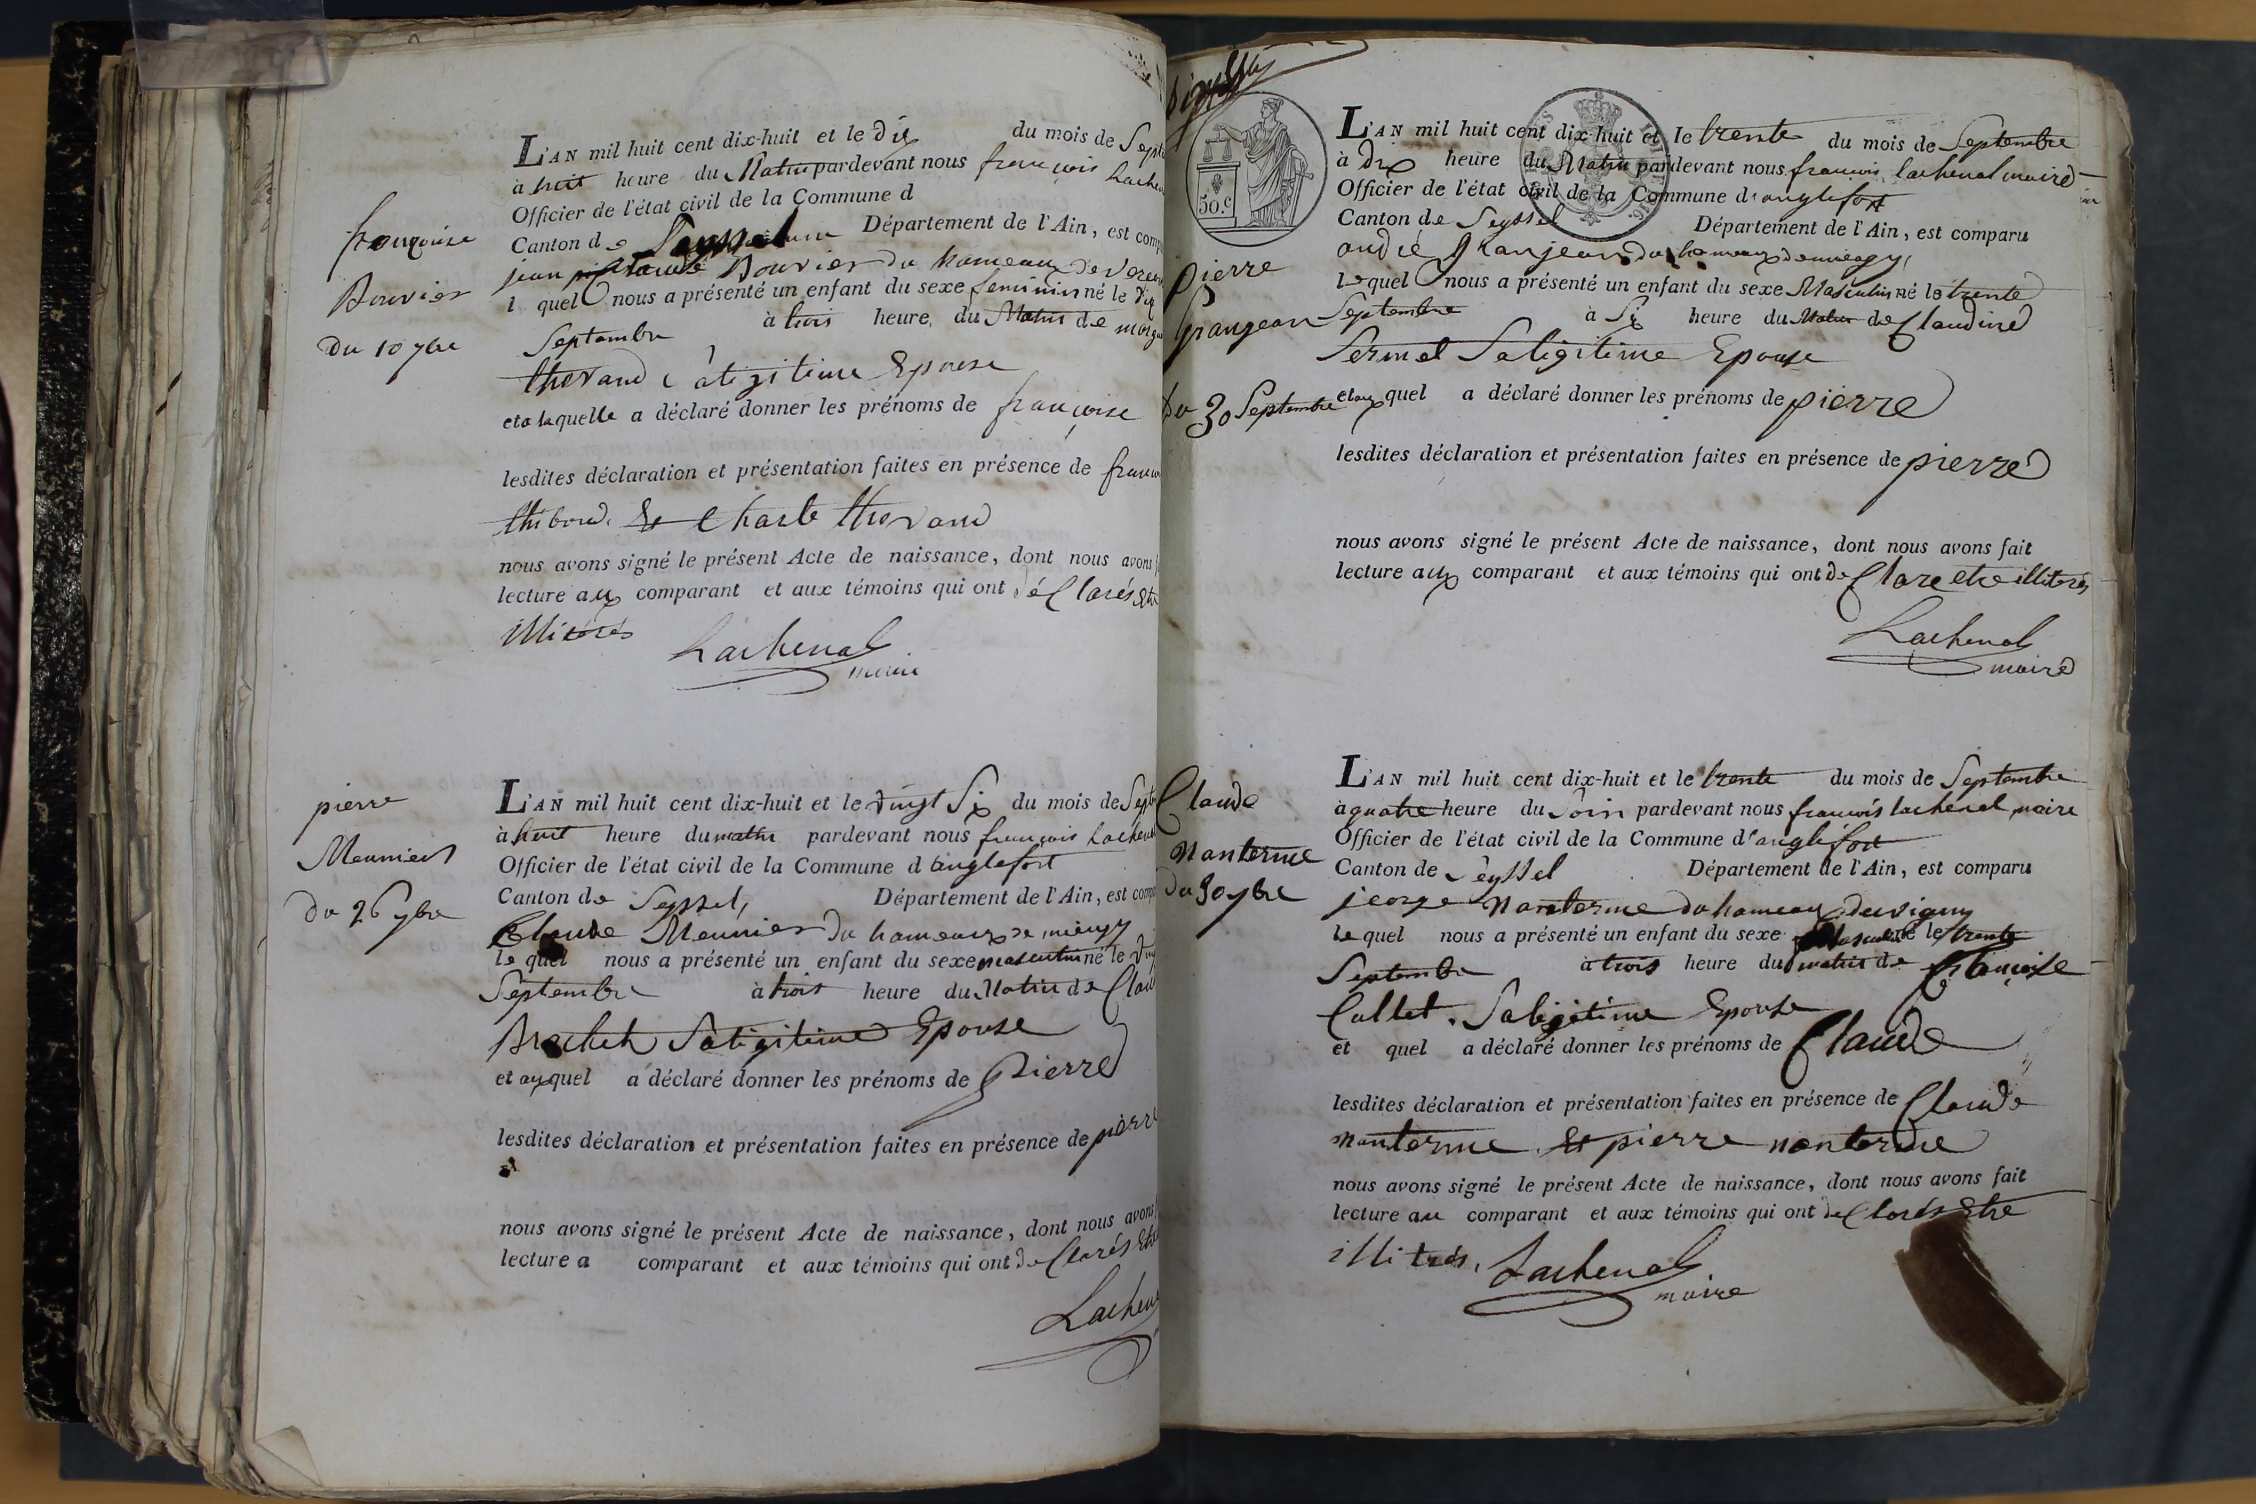 françoise
Bouvier
du 10 7bre
L'AN mil huit cent dix-huit et le dix du mois de Septe
à huit heure du Matin pardevant nous françois Lachen
Officier de l'état civil de la Commune d
Canton de Seyssel Département de l'Ain, est comp
jean Bouvier du hameau de
lequel nous a présenté un enfant du sexe feminin né le dix
Septembre à trois heure du Matin de
thovand Salégitime Epouse
et a laquelle a déclaré donner les prénoms de françoise
lesdites déclaration et présentation faites en présence de
thiboud Et Charle thovand
nous avons signé le présent Acte de naissance, dont nous avons
lecture aux comparant et aux témoins qui ont déClarés Etre
illiterés
Lachenal
maire
pierre
Meunier
du 26 7bre
L'AN mil huit cent dix-huit et le vingt Six du mois de Sept
à huit heure du matin pardevant nous françois Lachenal
Officier de l'état civil de la Commune d anglefort
Canton de Seyssel, Département de l'Ain, est comp
Claude Meunier du hameaux de mieugy
le quel nous a présenté un enfant du sexe masculin né le
Septembre à trois heure du Matin de Clau
Brachet Salégitime Epouse
et auxquel a déclaré donner les prénoms de Pierre
lesdites déclaration et présentation faites en présence de pierre
et
nous avons signé le présent Acte de naissance, dont nous avons
lecture a comparant et aux témoins qui ont deClarés Etre
Lachen
50.c
Pierre
Granjean
du 30 Septembre
L'AN mil huit cent dix-huit et le trente du mois de Septembre
à dix heure du Matin pardevant nous françois lachenal maire
Officier de l'état civil de la Commune d'anglefort
Canton de Seyssel Département de l'Ain, est comparu
andré granjean du hameaux de mieugy,
lequel nous a présenté un enfant du sexe Masculin né le trente
Septembre à Six heure du Matin de Claudine
Sermet Salegitime Epouse
et aux quel a déclaré donner les prénoms de pierre
lesdites déclaration et présentation faites en présence de pierre
nous avons signé le présent Acte de naissance, dont nous avons fait
lecture aux comparant et aux témoins qui ont deClare etre illiterés
Lachenal
maire
Claude
Nanterme
du 30 7bre
L'AN mil huit cent dix-huit et le trente du mois de Septembre
à quatre heure du Soir pardevant nous françois lachenal maire
Officier de l'état civil de la Commune d'anglefort
Canton de Seyssel Département de l'Ain, est comparu
jeorge Nanterme du hameaux
le quel nous a présenté un enfant du sexe Masculin né le trente
Septembre à trois heure du matin de françoise
Callet Salegitime Epouse
et quel a déclaré donner les prénoms de Claude
lesdites déclaration et présentation faites en présence de Claude
Nanterme Et pierre nanterme
nous avons signé le présent Acte de naissance, dont nous avons fait
lecture au comparant et aux témoins qui ont deClarés Etre
illitrés,
Lachenal
maire